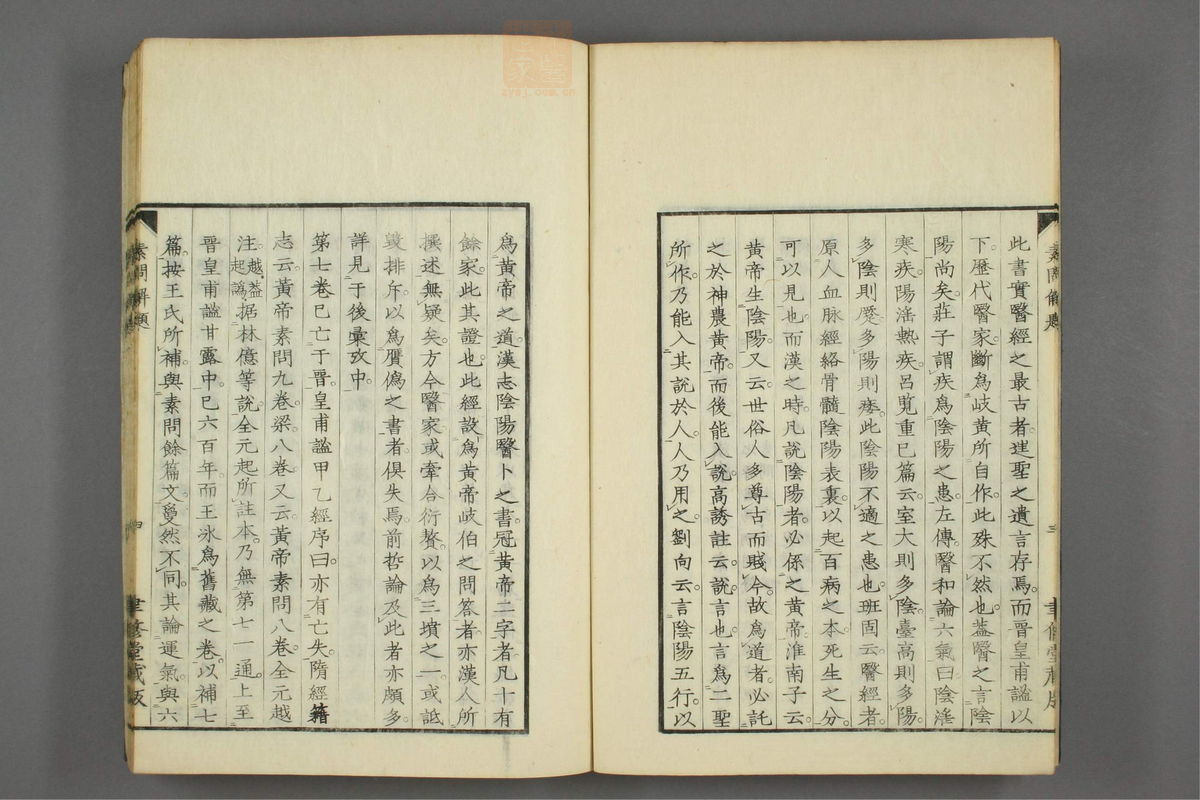 此書實醫經之最古者迬聖之遺言存焉而晋皇甫謐以
下歷代醫家斷爲岐黄所自作此殊不然也葢醫之言陰
陽尚矣莊子謂疾爲陰陽之患左傳醫和論六氣曰陰淫
寒疾陽淫熱疾呂覧重已篇云室大則多陰臺高則多陽
多陰則蹷多陽則痿此陰陽不適之患也班固云醫經者
原人血脉經絡骨髓陰陽表裏以起百病之本死生之分
可以見也而漢之時凡說陰陽者必係之黄帝淮南子云
黄帝生陰陽又云世俗人多尊古而賤今故爲道者必託
之於神農黄帝而後能入說高誘註云說言也言爲二聖
所作乃能入其說於人人乃用之劉向云言陰陽五行以
素問解題
三
聿修堂藏版
爲黄帝之道漢志陰陽醫卜之書冠黄帝二字者凡十有
餘家此其證也此經設爲黄帝岐伯之問答者亦漢人所
撰述無疑矣方今醫家或牽合衍贅以爲三墳之一或詆
毀排斥以爲贋僞之書者俱失焉前哲論及此者亦頗多
詳見于後彙攷中
第七卷已亡于晋皇甫謐甲乙經序曰亦有亡失隋經籍
志云黄帝素問九卷梁八卷又云黄帝素問八卷全元越
注越葢起譌據林億等說全元起所註本乃無第七一通上至
晋皇甫謐甘露中已六百年而王氷爲舊藏之卷以補七
篇按王氏所補與素問餘篇文敻然不同其論運氣與六
素問解題
四
聿修堂藏版